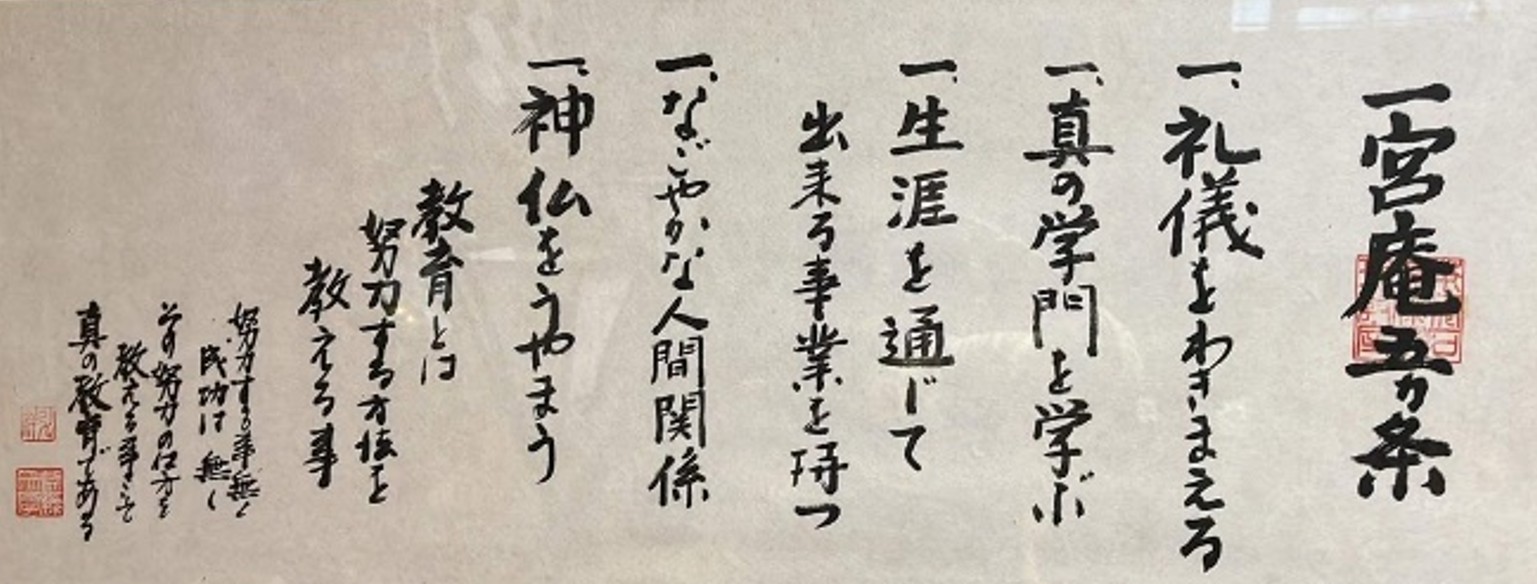 一宮庵五ヵ条
一、礼儀をわきまえる
一、真の学門を学ぶ
一、生涯を通じて
出来る事業を持つ
一、なごやかな人間関係
一、神仏をうやまう
教育とは
努力する方法を
教える事
努力する事無く
成功は無く
その努力の仕方を
教える事こそ
真の教育である